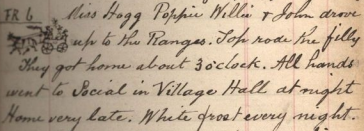 FR 6 Miss Hogg Poppie Willie & John drove
up to the Ranges. Top rode the filly
They got home about 3 o'clock. All hands
went to Social in Village Hall at night
Home very late. White frost every night.